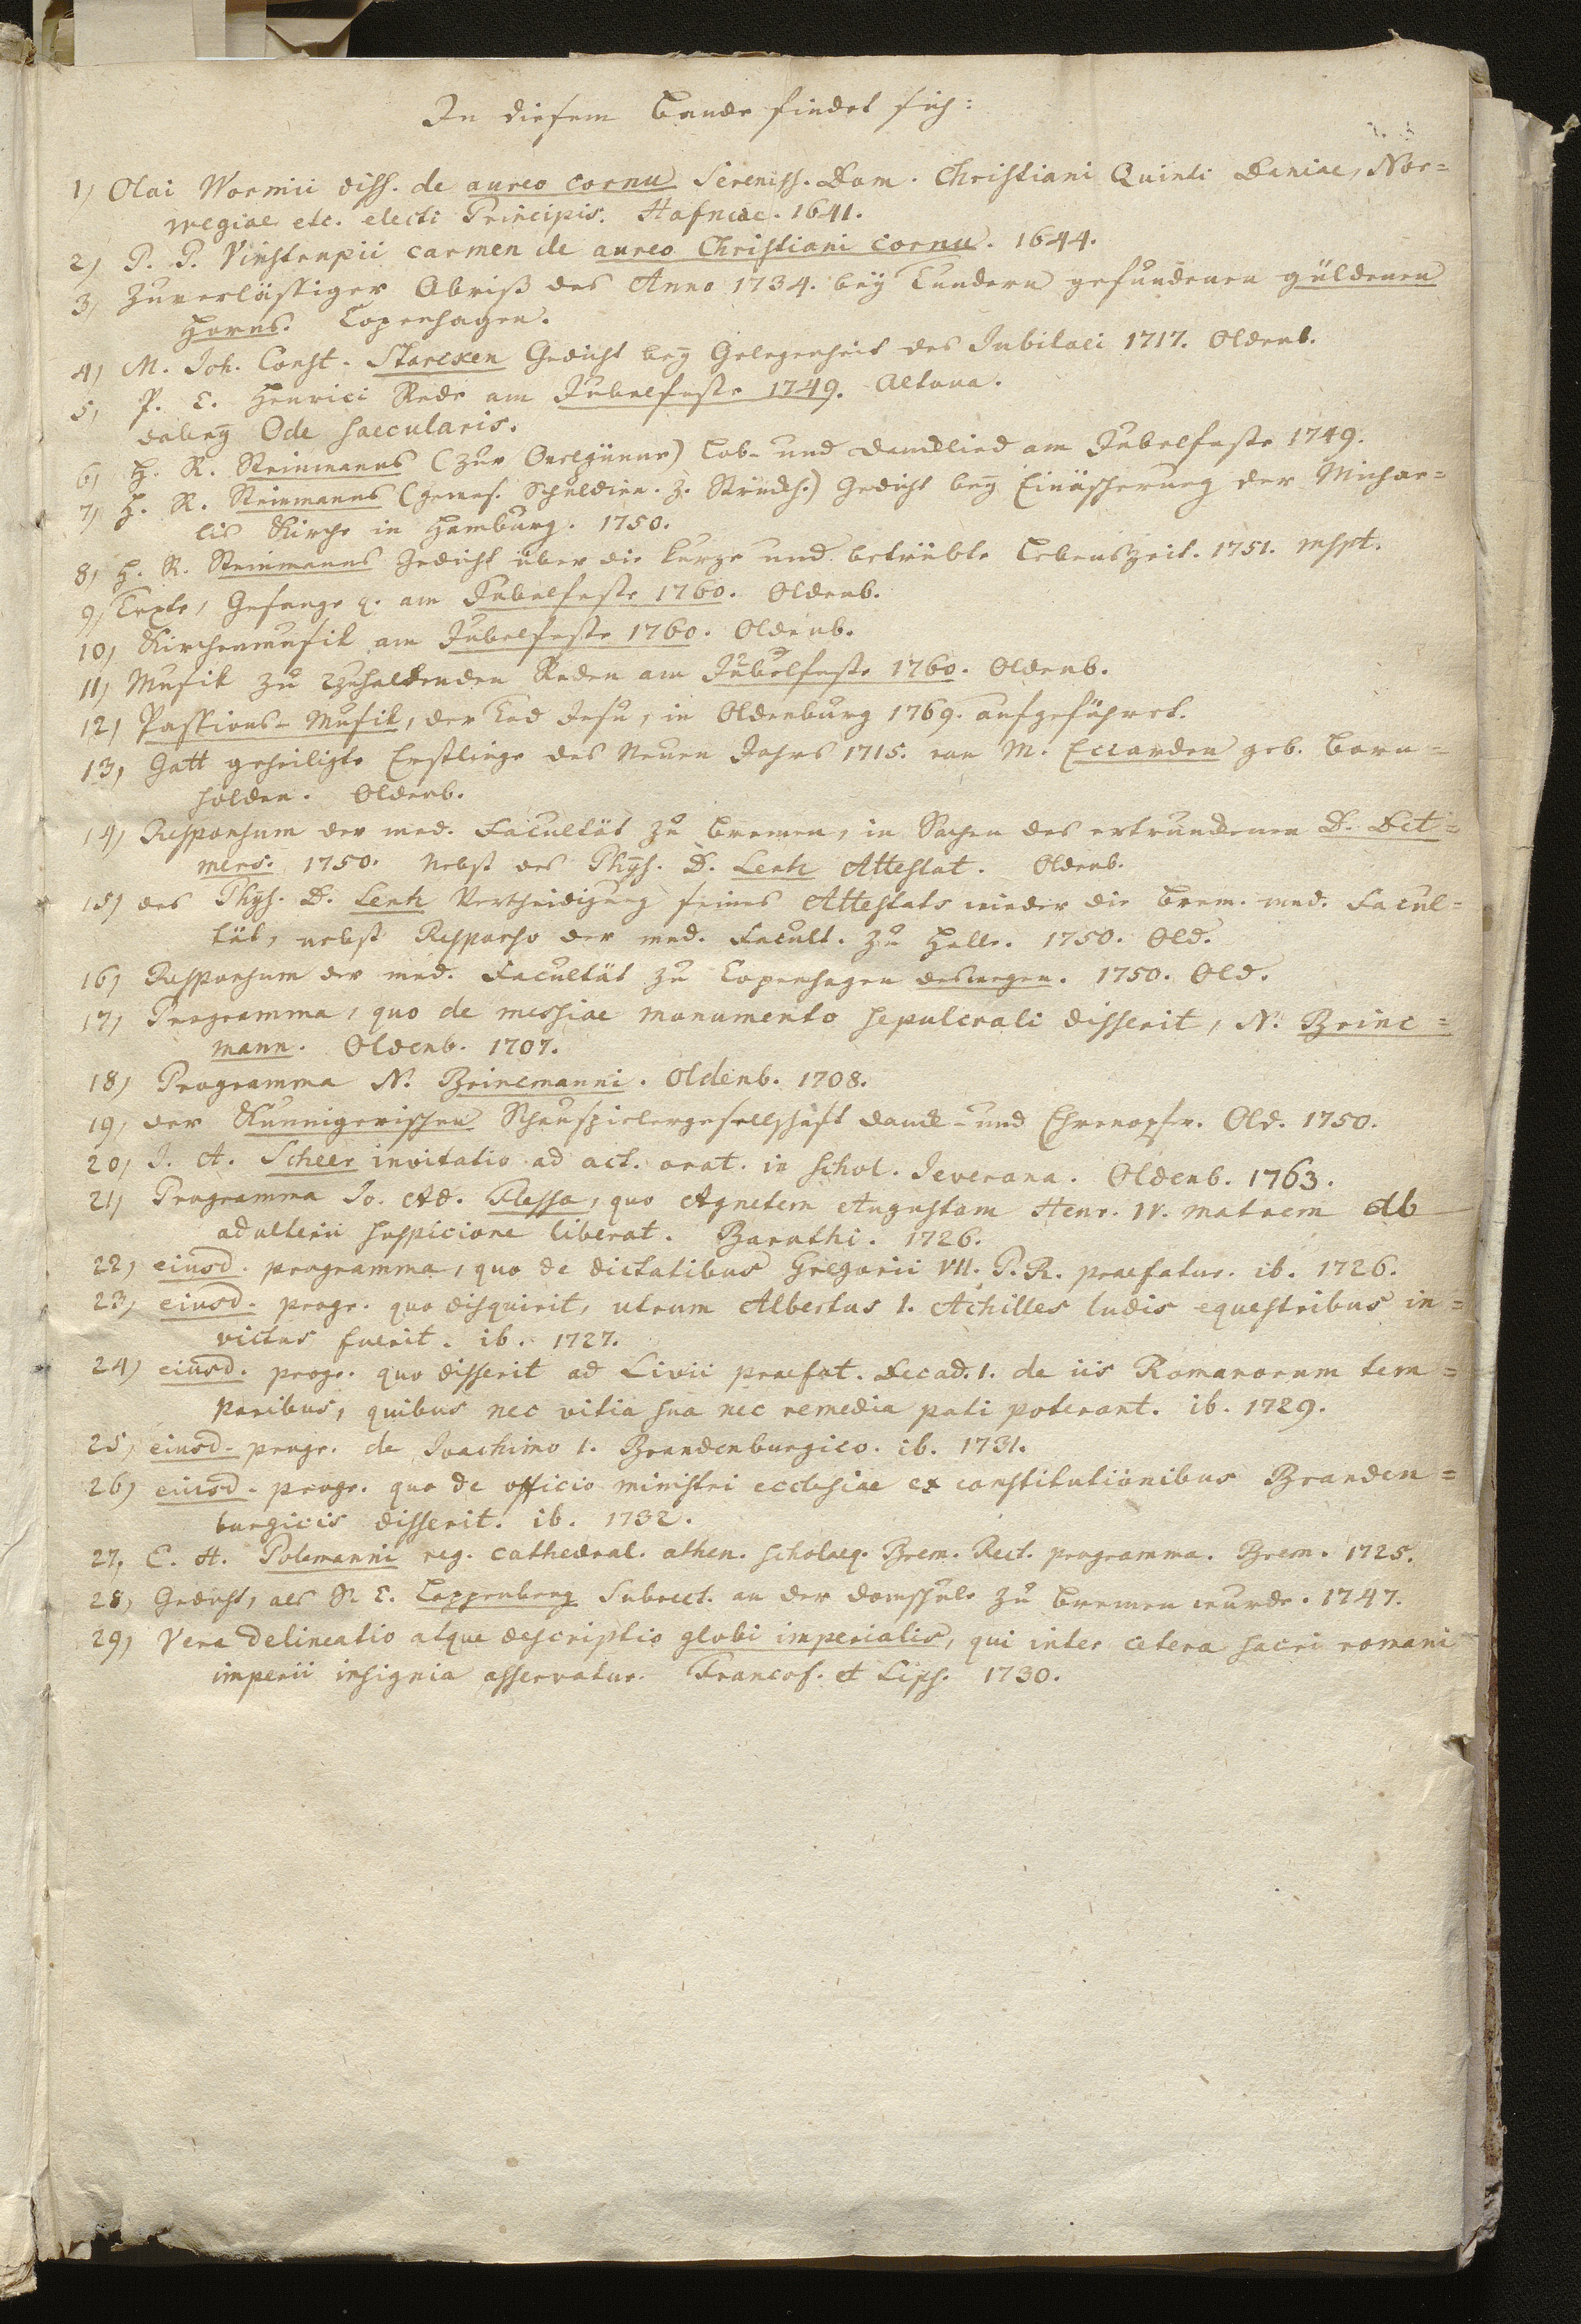 In diesem Bande findet sich:
1) Olai Wormii diss. de aureo cornu Sereniss. Dom. Christiani Quinti Daniae, Nor=
wegiae etc. electi Principis. Hafniae. 1641.
2) P. P. Vinstrupii carmen de aureo Christiani cornu. 1644.
3) Zuverlässiger Abriß des Anno 1734. bey Tundern gefundenen güldenen
Horns. Copenhagen.
4) M. Joh. Const. Starcken Gedicht bey Gelegenheit des Jubilaei 1717. Oldenb.
5) P. E. Henrici Rede am Jubelfeste 1749. Altona.
dabey Ode saecularis.
6) H. R. Steinmanns (zur Ovelgünne) Lob- und Dancklied am Jubelfeste 1749.
7) H. R. Steinmanns (gewes. Schuldien. z. Strückh.) Gedicht bey Einäscherung der Michae=
lis Kirche in Hamburg. 1750.
8) H. R. Steinmanns Gedicht über die kurze und betrübte Lebenszeit. 1751. mspt.
9) Texte, Gesänge q. am Jubelfeste 1760. Oldenb.
10) Kirchenmusik am Jubelfeste 1760. Oldenb.
11) Musik zu zuhaltenden Reden am Jubelfeste 1760. Oldenb.
12) Passions-Musik, der Tod Jesu, in Oldenburg 1769. aufgeführet.
13) Gott geheiligte Erstlinge des Neuen Jahrs 1715. von M. Eccarden geb. Born=
holden. Oldenb.
14) Responsum der med. Facultät zu Bremen, in Sachen des ertrunckenen D. Det=
mers. 1750. Nebst des Phys. D. Lentz Attestat. Oldenb.
15) des Phys. D. Lentz Vertheidigung seines Attestats wieder die Brem. med. Facul=
tät, nebst Responso der med. Facult. zu Halle. 1750. Old.
16) Responsum der med. Facultät zu Copenhagen deswegen. 1750. Old.
17) Programma, quo de messiae monumento sepulcrali disserit, N. Brinc=
mann. Oldenb. 1707.
18) Programma N. Brincmanni. Oldenb. 1708.
19) der Kunnigerischen Schauspielergesellschaft Danck- und Ehrenopfer. Old. 1750.
20) J. A. Scheer invitatio ad act. orat. in schol. Jeverana. Oldenb. 1763.
21) Programma Jo. Ad. Flessa, quo Agnetem Augustam Henr. IV. matrem ab
adulterii suspicione liberat. Baruthi. 1726.
22) eiusd. programma, quo de dictatibus Gregorii VII. P. R. praefatur. ib. 1726.
23) eiusd. progr. quo disquirit, utrum Albertus I. Achilles ludis equestribus in=
victus fuerit. ib. 1727.
24) eiusd. progr. quo disserit ad Livii praefat. Decad. I. de iis Romanorum tem=
poribus, quibus nec vitia sua nec remedia pati poterant. ib. 1729.
25) eiusd. progr. de Joachimo I. Brandenburgico. ib. 1731.
26) eiusd. progr. quo de officio ministri ecclesiae ex constitutionibus Branden=
burgicis disserit. ib. 1732.
27) E. H. Polemanni reg. cathedral. athen. scholaeq. Brem. Rect. programma. Brem. 1725.
28) Gedicht, als N. E. Lappenberg Subrect. an der Domschule zu Bremen wurde. 1747.
29) Vera delineatio atque descriptio globi imperialis, qui inter cetera sacri romani
imperii insignia asservatur. Francof. et Lips. 1730.